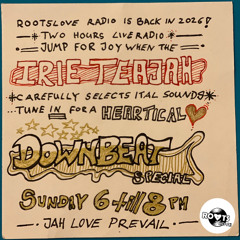 ROOTSLOVE RADIO IS BACK IN 2026!
TWO HOURS LIVE RADIO
JUMP FOR JOY WHEN THE
IRIE TEAJAH
CAREFULLY SELECTS ITAL SOUNDS
TUNE IN FOR A HEARTICAL
DOWNBEAT
SPECIAL
SUNDAY 6-till 8 PM
JAH LOVE PREVAIL
ROOTS